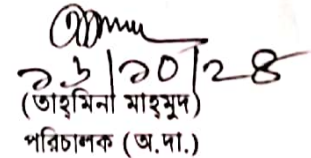 ১৬/১০/২৪
(তাহমিনা মাহমুদ)
পরিচালক (অ.দা.)